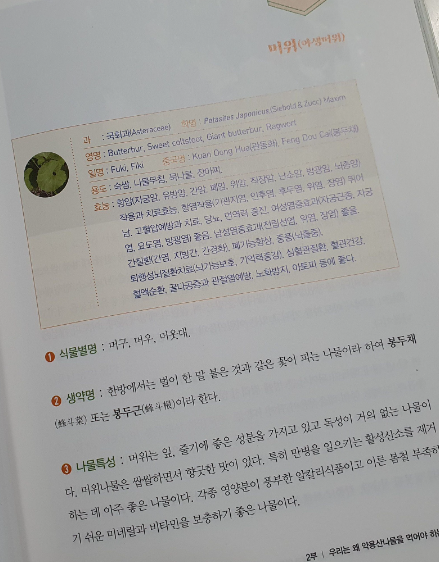 머위(야생머위)
과 : 국화과(Asteraceae) 학명 : Petasites Japonicus (Siebold & Zucc) Maxim
영명 : Butterbur, Sweet coltsfoot, Giant butterbur, Bogwort
일명 : Fuki, Fiki 중국명 : Kuan Dong Hua(관동화), Feng Dou Cai(봉두채)
용도 : 숙쌈, 나물무침, 묵나물, 장아찌,
효능 : 항암(자궁암, 유방암, 간암, 폐암, 위암, 직장암, 난소암, 방광암, 뇌종양)
작용과 치료효능, 항염작용(기관지염, 인후염, 후두염, 위염, 장염) 뛰어
남, 고혈압예방과 치료, 당뇨, 면역력 증진, 여성염증효과(자궁근종, 자궁
염, 요도염, 방광염) 좋음, 남성염증효과(전립선염,
간질환(간염, 지방간, 간경화), 폐기능향상, 중풍(뇌졸중),
퇴행성뇌질환치료(뇌기능보호, 기억력증강), 심혈관질환, 혈관건강,
혈액순환, 꽃가루증과 관절염예방, 노화방지, 아토피 등에 좋다.
❶ 식물별명 : 머구, 머우, 머웃대.
❷ 생약명 : 한방에서는 벌이 한 말 붙은 것과 같은 꽃이 피는 나물이라 하여 봉두채
(蜂斗菜) 또는 봉두근(蜂斗根)이라 한다.
❸ 나물특성 : 머위는 잎, 줄기에 좋은 성분을 가지고 있고 독성이 거의 없는 나물이
다. 머위나물은 쌉쌀하면서 향긋한 맛이 있다. 특히 만병을 일으키는 활성산소를 제거
하는 데 아주 좋은 나물이다. 각종 영양분이 풍부한 알칼리식품이고 이른 봄철 부족하
기 쉬운 미네랄과 비타민을 보충하기 좋은 나물이다.
2부 | 우리는 왜 약용산나물을 먹어야 하